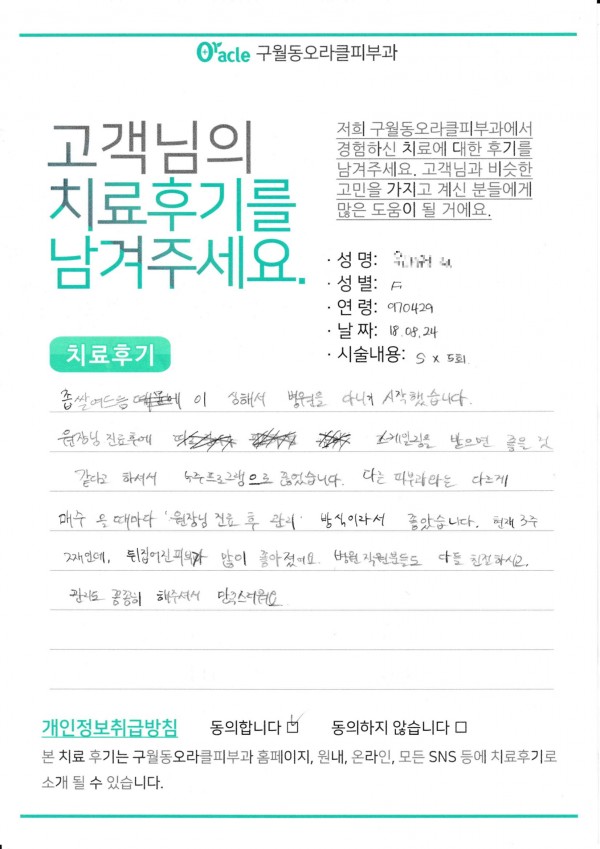 Oracle 구월동오라클피부과
고객님의
치료후기를
남겨주세요.
저희 구월동오라클피부과에서
경험하신 치료에 대한 후기를
남겨주세요. 고객님과 비슷한
고민을 가지고 계신 분들에게
많은 도움이 될 거에요.
· 성 명:
· 성 별: F
· 연 령: 970429
· 날 짜: 18.08.24
· 시술내용: S x 5회.
치료후기
좁쌀여드름 이 심해서 병원을 다니기 시작했습니다.
원장님 진료후에 스케일링을 받으면 좋을 것
같다고 하셔서 5주프로그램으로 끊었습니다. 다른 피부과와는 다르게
매주 올때마다 '원장님 진료 후 관리' 방식이라서 좋았습니다. 현재 3주
째인데, 뒤집어진피부가 많이 좋아졌어요. 병원 직원분들도 다들 친절하시고,
관리도 꼼꼼히 해주셔서 만족스러워요
개인정보취급방침 동의합니다 동의하지 않습니다
본 치료 후기는 구월동오라클피부과 홈페이지, 원내, 온라인, 모든 SNS 등에 치료후기로
소개 될 수 있습니다.